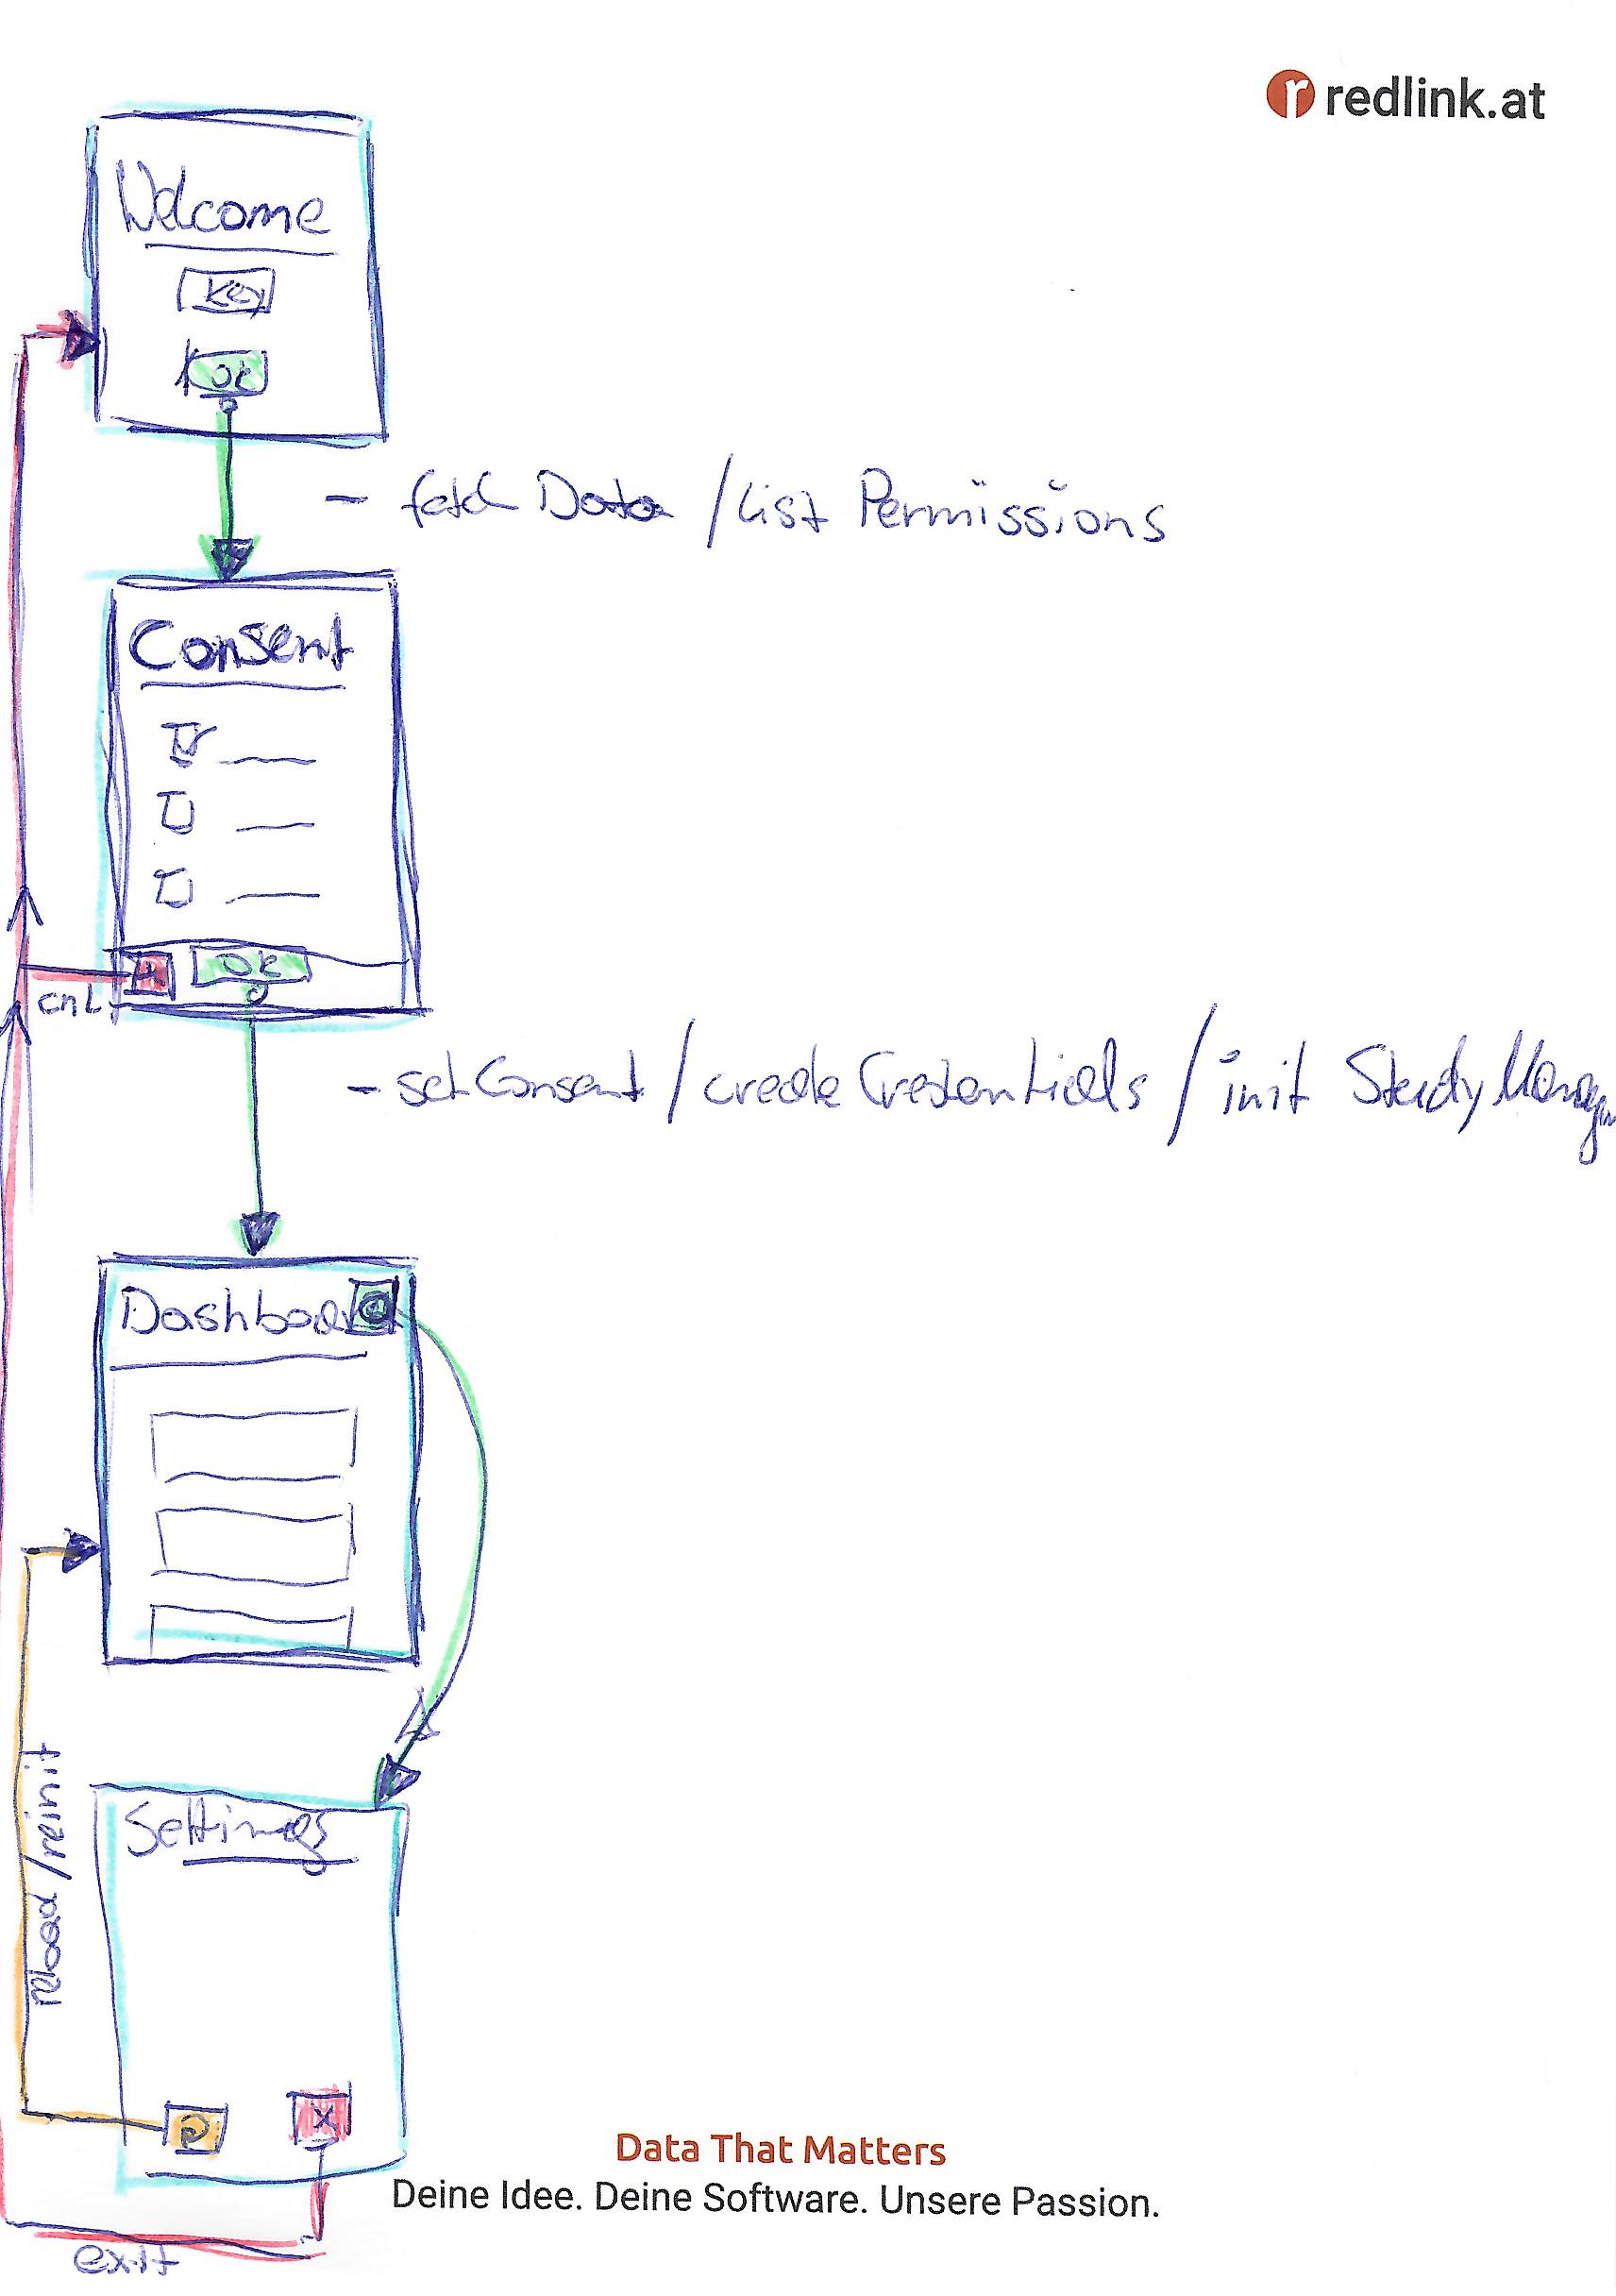 redlink.at
Welcome
Key
OK
- fetch Data / List Permissions
Consent
OK
cnl
- setConsent / create Credentials / init StudyManager
Dashboard
Settings
reload / reinit
X
exit
Data That Matters
Deine Idee. Deine Software. Unsere Passion.